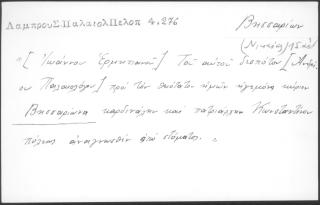 Λαμπρου Σ. Παλαιολ Πελοπ 4, 276
Βησσαρίων
(Νικαίας) 15 αἰ
"[Ἰωάννου Εὐγενικοῦ] Τοῦ αὐτοῦ δεσπότου [Ἀνδρέ-
ου Παλαιολόγου] πρὸ τὸν θειότατον ἡμῶν ἡγεμόνα κύριον
Βησσαρίωνα καρδινάλην καὶ πατριάρχην Κωνσταντίνου
πόλεως ἀναγνωσθὲν ἀπὸ στόματος.